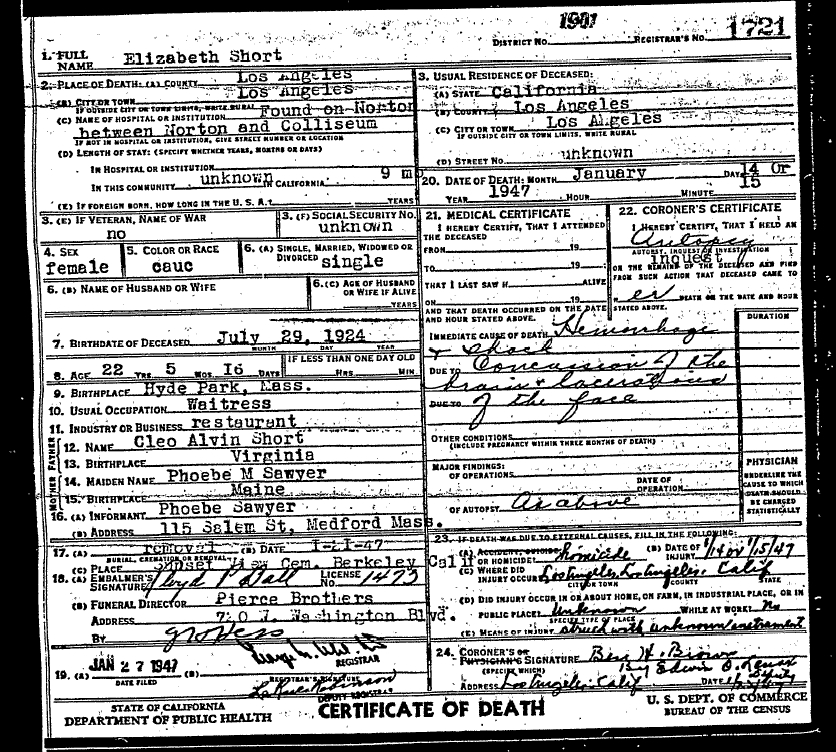 DISTRICT No. 1901 REGISTRAR'S No. 1721
1. FULL NAME Elizabeth Short
2. PLACE OF DEATH: (A) COUNTY Los Angeles
(B) CITY OR TOWN Los Angeles
IF OUTSIDE CITY OR TOWN LIMITS, WRITE RURAL
(C) NAME OF HOSPITAL OR INSTITUTION Found on Norton
between Norton and Colliseum
IF NOT IN HOSPITAL OR INSTITUTION, GIVE STREET NUMBER OR LOCATION
(D) LENGTH OF STAY: (SPECIFY WHETHER YEARS, MONTHS OR DAYS)
IN HOSPITAL OR INSTITUTION
IN THIS COMMUNITY unknown IN CALIFORNIA 9 mo
(E) IF FOREIGN BORN, HOW LONG IN THE U. S. A.? YEARS
3. USUAL RESIDENCE OF DECEASED:
(A) STATE California
(B) COUNTY Los Angeles
(C) CITY OR TOWN Los Angeles
IF OUTSIDE CITY OR TOWN LIMITS, WRITE RURAL
(D) STREET No. unknown
20. DATE OF DEATH: MONTH January DAY 14 or 15
YEAR 1947 HOUR MINUTE
3. (E) IF VETERAN, NAME OF WAR no
3. (F) SOCIAL SECURITY No. unknown
4. SEX female
5. COLOR OR RACE cauc
6. (A) SINGLE, MARRIED, WIDOWED OR DIVORCED single
6. (B) NAME OF HUSBAND OR WIFE
6. (C) AGE OF HUSBAND OR WIFE IF ALIVE YEARS
7. BIRTHDATE OF DECEASED July 29, 1924
MONTH DAY YEAR
8. AGE 22 YRS. 5 MOS. 16 DAYS IF LESS THAN ONE DAY OLD HRS. MIN.
9. BIRTHPLACE Hyde Park, Mass.
10. USUAL OCCUPATION Waitress
11. INDUSTRY OR BUSINESS restaurant
FATHER
12. NAME Cleo Alvin Short
13. BIRTHPLACE Virginia
MOTHER
14. MAIDEN NAME Phoebe M Sawyer
15. BIRTHPLACE Maine
16. (A) INFORMANT Phoebe Sawyer
(B) ADDRESS 115 Salem St, Medford Mass.
17. (A) removal (B) DATE 1-21-47
BURIAL, CREMATION OR REMOVAL?
(C) PLACE Sunset View Cem. Berkeley Calif
18. (A) EMBALMER'S SIGNATURE LICENSE No. 1473
(B) FUNERAL DIRECTOR Pierce Brothers
ADDRESS 720 W. Washington Blvd.
BY
19. (A) JAN 27 1947 (B) REGISTRAR
DATE FILED REGISTRAR'S SIGNATURE
DEPUTY REGISTRAR
21. MEDICAL CERTIFICATE
I HEREBY CERTIFY, THAT I ATTENDED THE DECEASED
FROM 19
TO 19
THAT I LAST SAW H ALIVE
ON 19
AND THAT DEATH OCCURRED ON THE DATE AND HOUR STATED ABOVE.
22. CORONER'S CERTIFICATE
I HEREBY CERTIFY, THAT I HELD AN
Autopsy
AUTOPSY, INQUEST OR INVESTIGATION
inquest
ON THE REMAINS OF THE DECEASED AND FIND FROM SUCH ACTION THAT DECEASED CAME TO
er DEATH ON THE DATE AND HOUR STATED ABOVE.
DURATION
IMMEDIATE CAUSE OF DEATH Hemorrhage
& shock
DUE TO Concussion of the
brain & lacerations
DUE TO of the face
OTHER CONDITIONS
(INCLUDE PREGNANCY WITHIN THREE MONTHS OF DEATH)
MAJOR FINDINGS:
OF OPERATIONS DATE OF OPERATION
OF AUTOPSY As above
PHYSICIAN
UNDERLINE THE CAUSE TO WHICH DEATH SHOULD BE CHARGED STATISTICALLY
23. IF DEATH WAS DUE TO EXTERNAL CAUSES, FILL IN THE FOLLOWING:
(A) ACCIDENT, SUICIDE OR HOMICIDE? Homicide (B) DATE OF INJURY 1/14 or 1/15/47
(C) WHERE DID INJURY OCCUR? Los Angeles, Los Angeles, Calif
CITY OR TOWN COUNTY STATE
(D) DID INJURY OCCUR IN OR ABOUT HOME, ON FARM, IN INDUSTRIAL PLACE, OR IN
PUBLIC PLACE? Unknown WHILE AT WORK? No
SPECIFY TYPE OF PLACE
(E) MEANS OF INJURY struck with unknown instrument
24. CORONER'S OR PHYSICIAN'S SIGNATURE Ben H. Brown
(SPECIFY WHICH) By Edwin
ADDRESS Los Angeles, Calif DATE
STATE OF CALIFORNIA
DEPARTMENT OF PUBLIC HEALTH
CERTIFICATE OF DEATH
U. S. DEPT. OF COMMERCE
BUREAU OF THE CENSUS